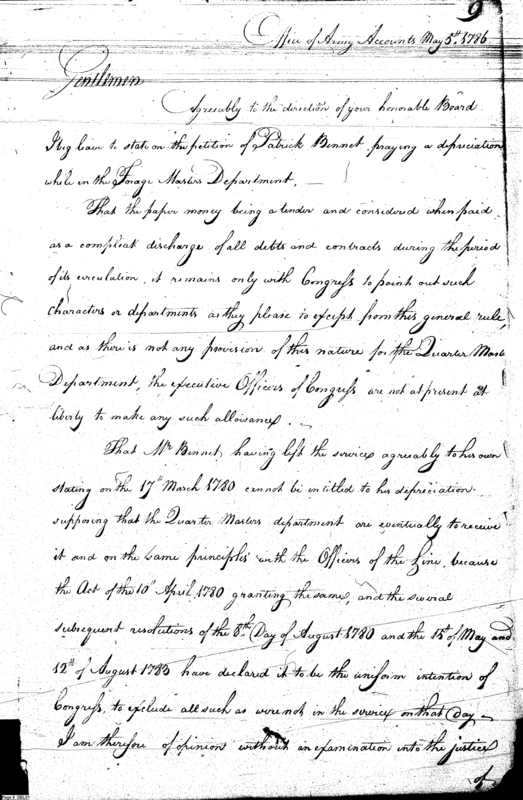 9
Office of Army Accounts May 5th. 1786
Gentlemen
Agreeably to the direction of your honorable Board
I beg leave to state on the petition of Patrick Bennet, praying a depreciation
while in the Forage Masters Department.
That the paper money being a tender and considered when paid
as a compleat discharge of all debts and contracts during the period
of its circulation, it remains only with Congress to point out such
characters or departments as they please to except from this general rule,
and as there is not any provision of this nature for the Quarter Mast
Department, the executive Officers of Congress are not at present at
liberty to make any such allowance.
That Mr Bennet, having left the service agreably to his own
stating on the 17th March 1780 cannot be intitled to his depreciation
supposing that the Quarter Masters department are eventually to receive
it and on the same principles with the Officers of the Line, because
the Act of the 10th April, 1780 granting the same, and the several
subsequent resolutions of the 8th. Day of August 1780 and the of May and
12th of August 1783 have declared it to be the uniform intention of
Congress, to exclude all such as were not in the service on that Day
I am therefore of opinion without an examination into the justice
of